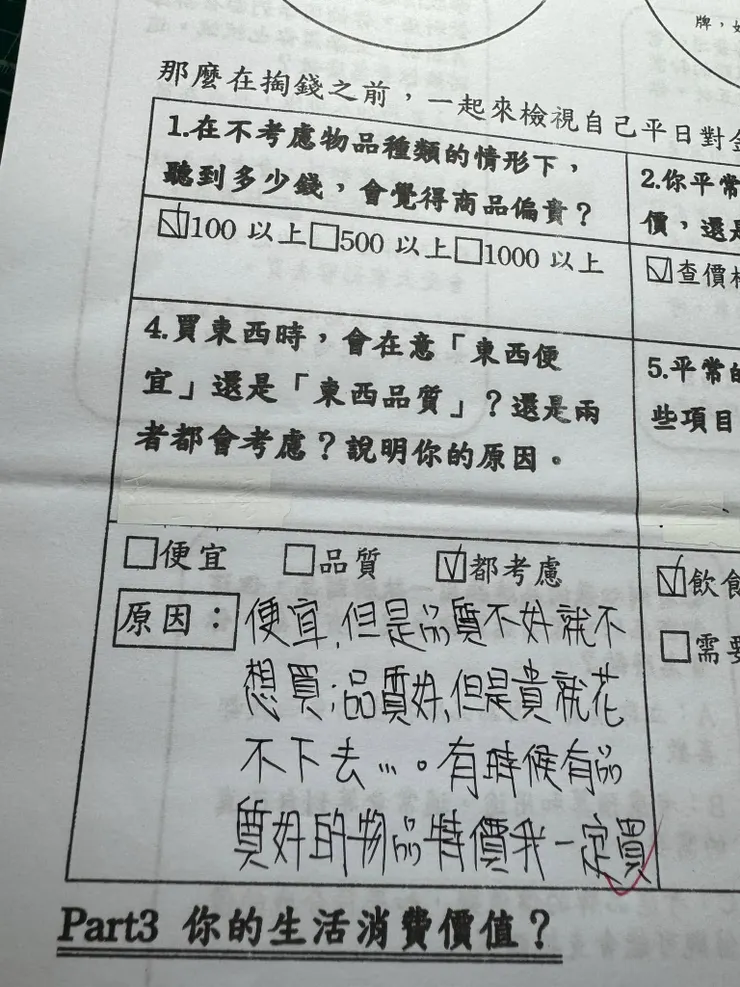 牌，
那麼在掏錢之前，一起來檢視自己平日對金
1.在不考慮物品種類的情形下，
聽到多少錢，會覺得商品偏貴？
☑100 以上□500 以上□1000 以上
2.你平常
價，還是
☑查價格
4.買東西時，會在意「東西便
宜」還是「東西品質」？還是兩
者都會考慮？說明你的原因。
□便宜 □品質 ☑都考慮
原因：便宜,但是品質不好就不
想買;品質好,但是貴就花
不下去…。有時候有品
質好的物品特價我一定買
5.平常的
些項目
☑飲食
□需要
Part3 你的生活消費價值？